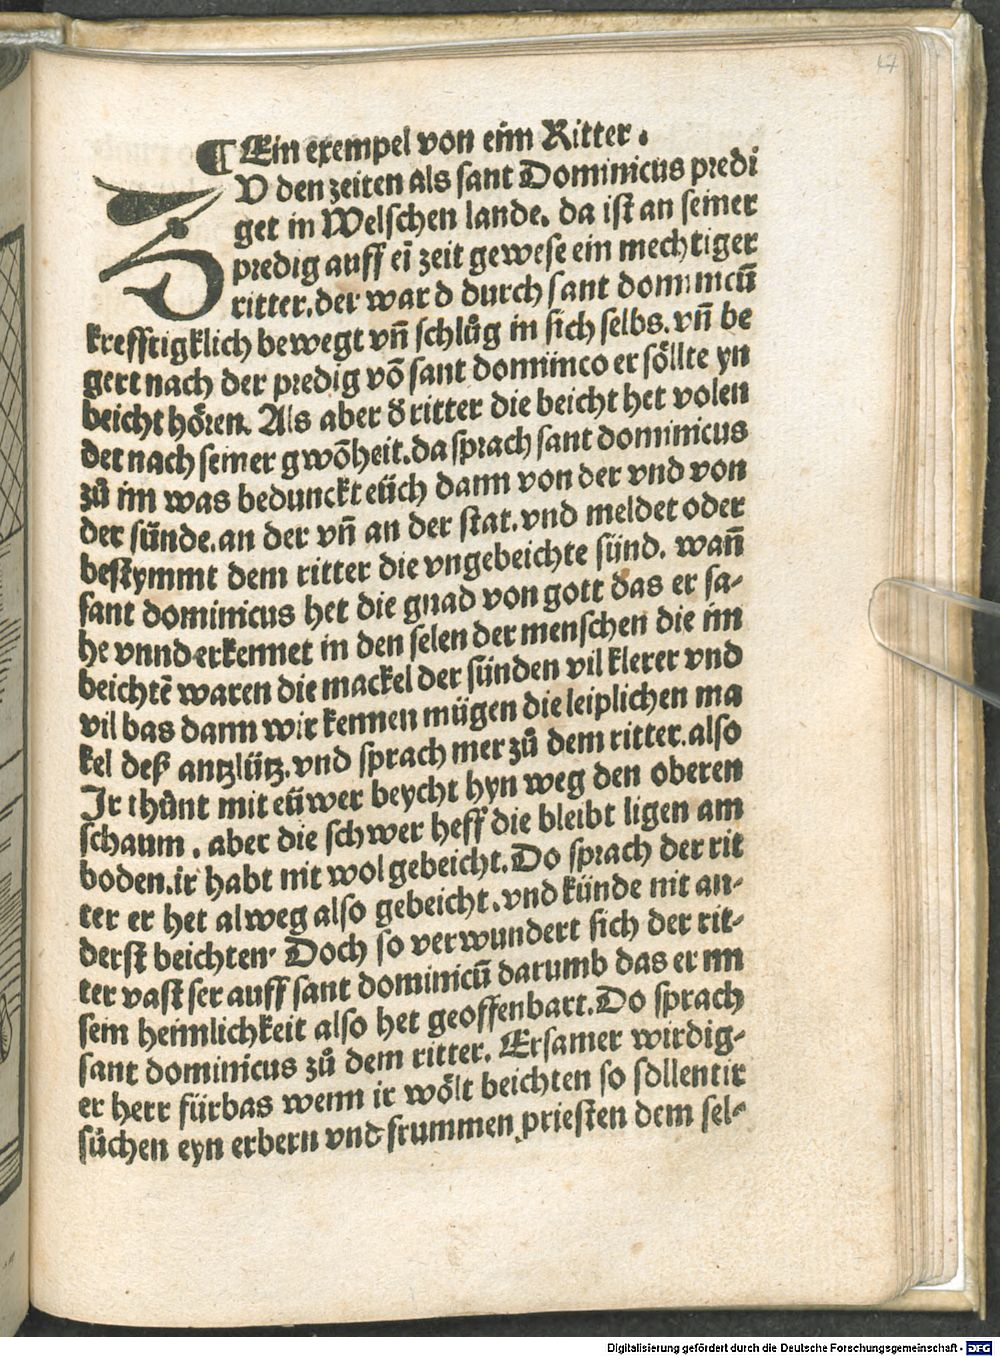 17
¶ Ein exempel von eim Ritter.
ZU den zeiten als sant Dominicus predi
get in Welschen lande. da ist an seiner
predig auff eī zeit gewese ein mechtiger
ritter. der ward durch sant dominicū
krefftigklich bewegt vn̄ schlůg in sich selbs. vn̄ be
gert nach der predig vō sant dominico er söllte yn
beicht hören. Als aber đ ritter die beicht het volen
det nach seiner gwōheit. da sprach sant dominicus
zů im was beduncket eüch dann von der vnd von
der sünde. an der vn̄ an der stat. vnd meldet oder
bestymmt dem ritter die vngebeichte sünd. wan̄
sant dominicus het die gnad von gott das er sa-
he vnnd erkennet in den selen der menschen die im
beichtē waren die mackel der sünden vil klerer vnd
vil bas dann wir kennen mügen die leiplichen ma
kel deß antzlütz. vnd sprach mer zů dem ritter. also
Ir thůnt mit eüwer beycht hyn weg den oberen
schaum. aber die schwer heff die bleibt ligen am
boden. ir habt nit wol gebeicht. Do sprach der rit
ter er het alweg also gebeicht. vnd künde nit an-
derst beichten. Doch so verwundert sich der rit-
ter vast ser auff sant dominicū darumb das er im
sein heimlichkeit also het geoffenbart. Do sprach
sant dominicus zů dem ritter. Ersamer wirdig-
er herr fürbas wenn ir wölt beichten so sollent ir
sůchen eyn erbern vnd frummen priesten dem sel-
Digitalisierung gefördert durch die Deutsche Forschungsgemeinschaft - DFG